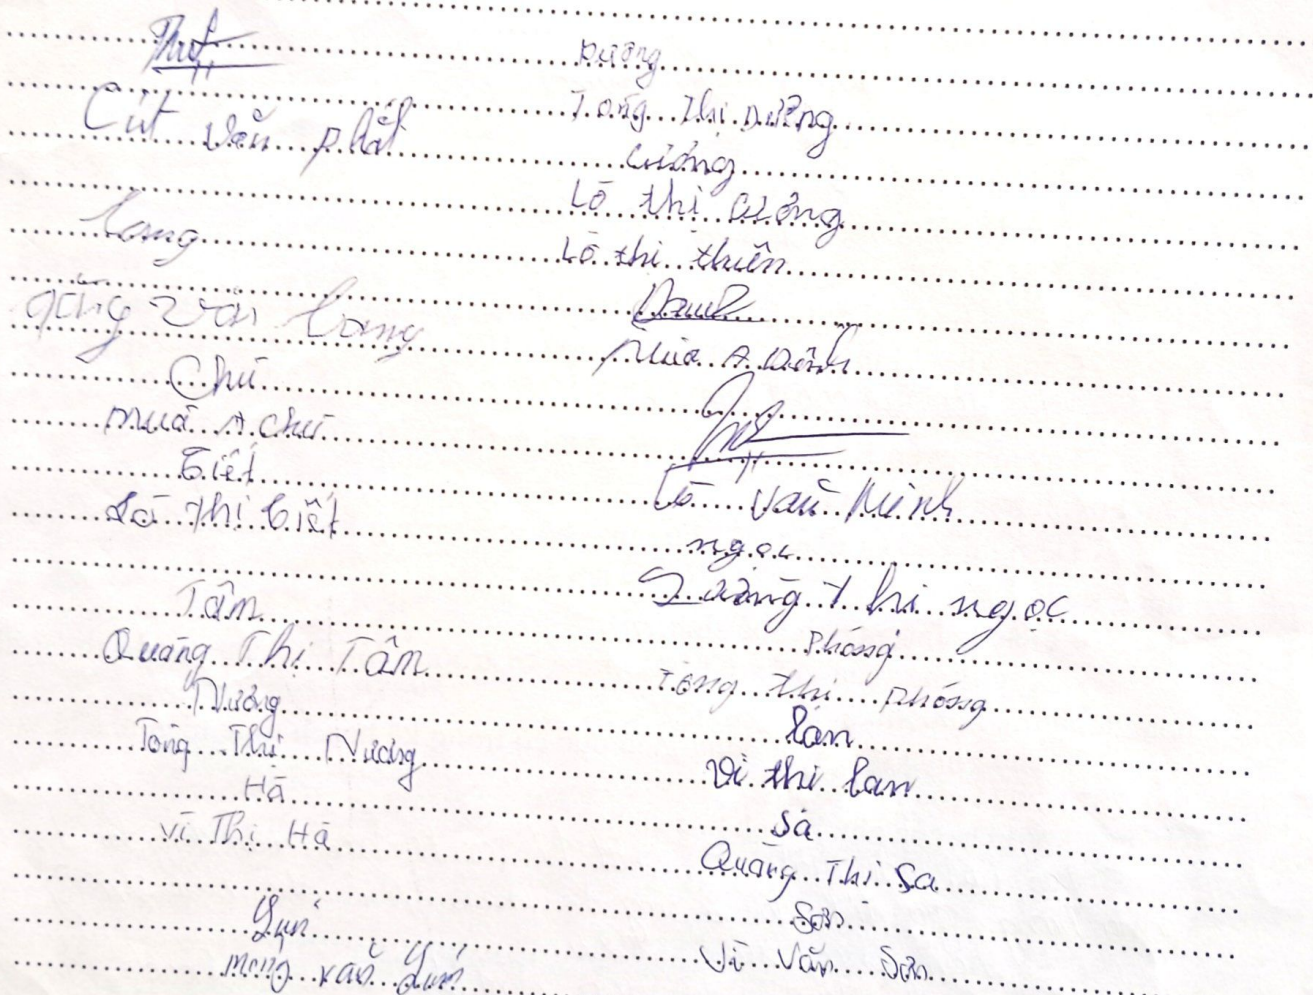 Cút văn phát
Long
Quàng Văn Long
Chú
mua A chú
Biết
Lò Thị Biết
Tâm
Quàng Thị Tâm
Nương
Tòng Thị Nương
Hà
Vì Thị Hà
văn
Dương
Tòng Thị Dương
Lò thị
Lò thị thiên
Mùa A Dênh
Lò Văn Minh
ngọc
Quàng Thị ngọc
Phóng
Tòng thị phóng
lan
Vì thị lan
Sa
Quàng Thị Sa
Sơn
Vì Văn Sơn